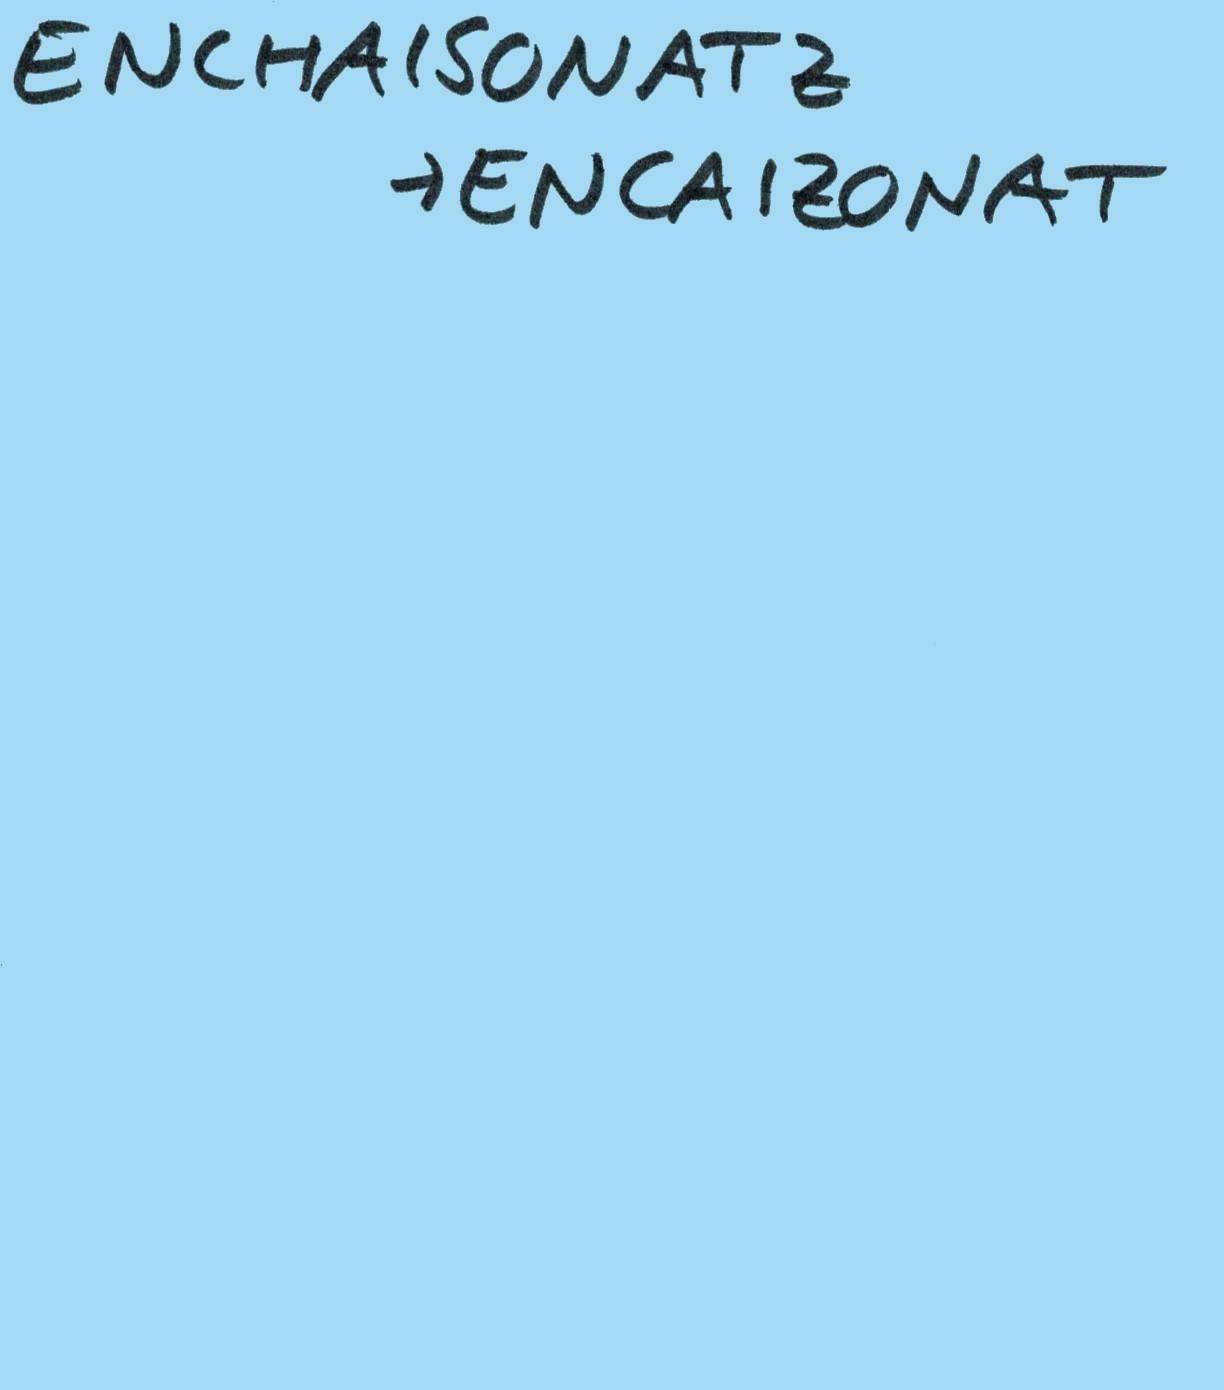 ENCHAISONATZ
→ENCAIZONAT